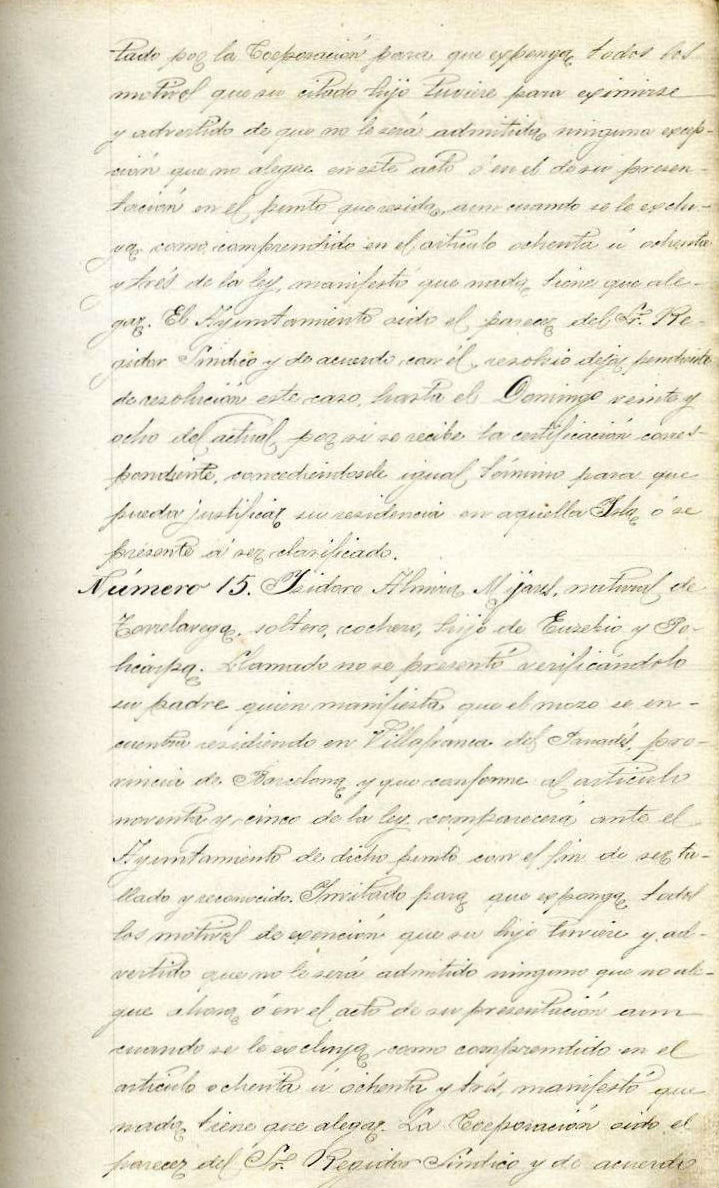 tado por la Corporación para que exponga todos los
motivos que su citado hijo tuviere para eximirse
y advertido de que no le será admitida ninguna excep-
ción que no alegue en este acto ó en el de su presen-
tación en el punto que resida, aun cuando se le exclu-
ya como comprendido en el artículo ochenta ú ochenta
y trés de la ley, manifestó que nada tiene que ale-
gar. El Ayuntamiento oido el parecer del Sr. Re-
gidor Síndico y de acuerdo con él, resolvió dejar pendiente
de resolución este caso, hasta el Domingo veinte y
ocho del actual, por si se recibe la certificación corres-
pondiente, concediéndosele igual término para que
pueda justificar su residencia en aquella Isla ó se
presente á ser clasificado.
Número 15. Isidoro Almira Mijares, natural de
Torrelavega, soltero, cochero, hijo de Eusebio y Po-
licarpa. Llamado no se presentó verificándolo
su padre quien manifiesta que el mozo se en-
cuentra residiendo en Villafranca del Panadés, pro-
vincia de Barcelona y que conforme al artículo
noventa y cinco de la ley comparecerá ante el
Ayuntamiento de dicho punto con el fin de ser ta-
llado y reconocido. Invitado para que exponga todos
los motivos de exención que su hijo tuviere y ad-
vertido que no le será admitido ninguno que no ale-
gue ahora ó en el acto de su presentación aun
cuando se le excluya como comprendido en el
artículo ochenta ú ochenta y trés, manifestó que
nada tiene que alegar. La Corporación oido el
parecer del Sr. Regidor Síndico y de acuerdo